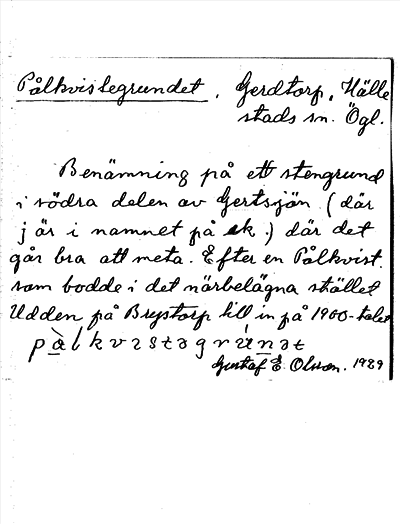 Pålkvistegrundet, Gerdtorp, Hälle
stads sn. Ögl.
Benämning på ett stengrund
i södra delen av Gertsjön (där
j är i namnet på sk.) där det
går bra att meta. Efter en Pålkvist
som bodde i det närbelägna stället
Udden på Brystorp till in på 1900-talet
Gustaf E. Olsson. 1929